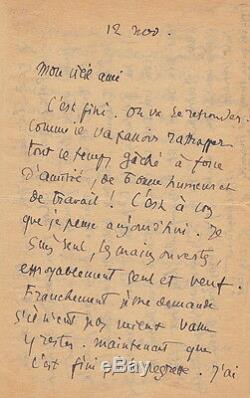 12 nov.
Mon vieil ami
C'est fini. On va se retrouver.
Comme il va falloir rattrapper
tout le temps gâché à force
d'amitié, de bonne humeur et
de travail ! C'est à toi
que je pense aujourd'hui. Je
suis seul, les mains ouvertes,
effroyablement seul et veuf.
Franchement je me demande
s'il n'eut pas mieux valu
y rester. maintenant que
c'est fini je regrette. J'ai